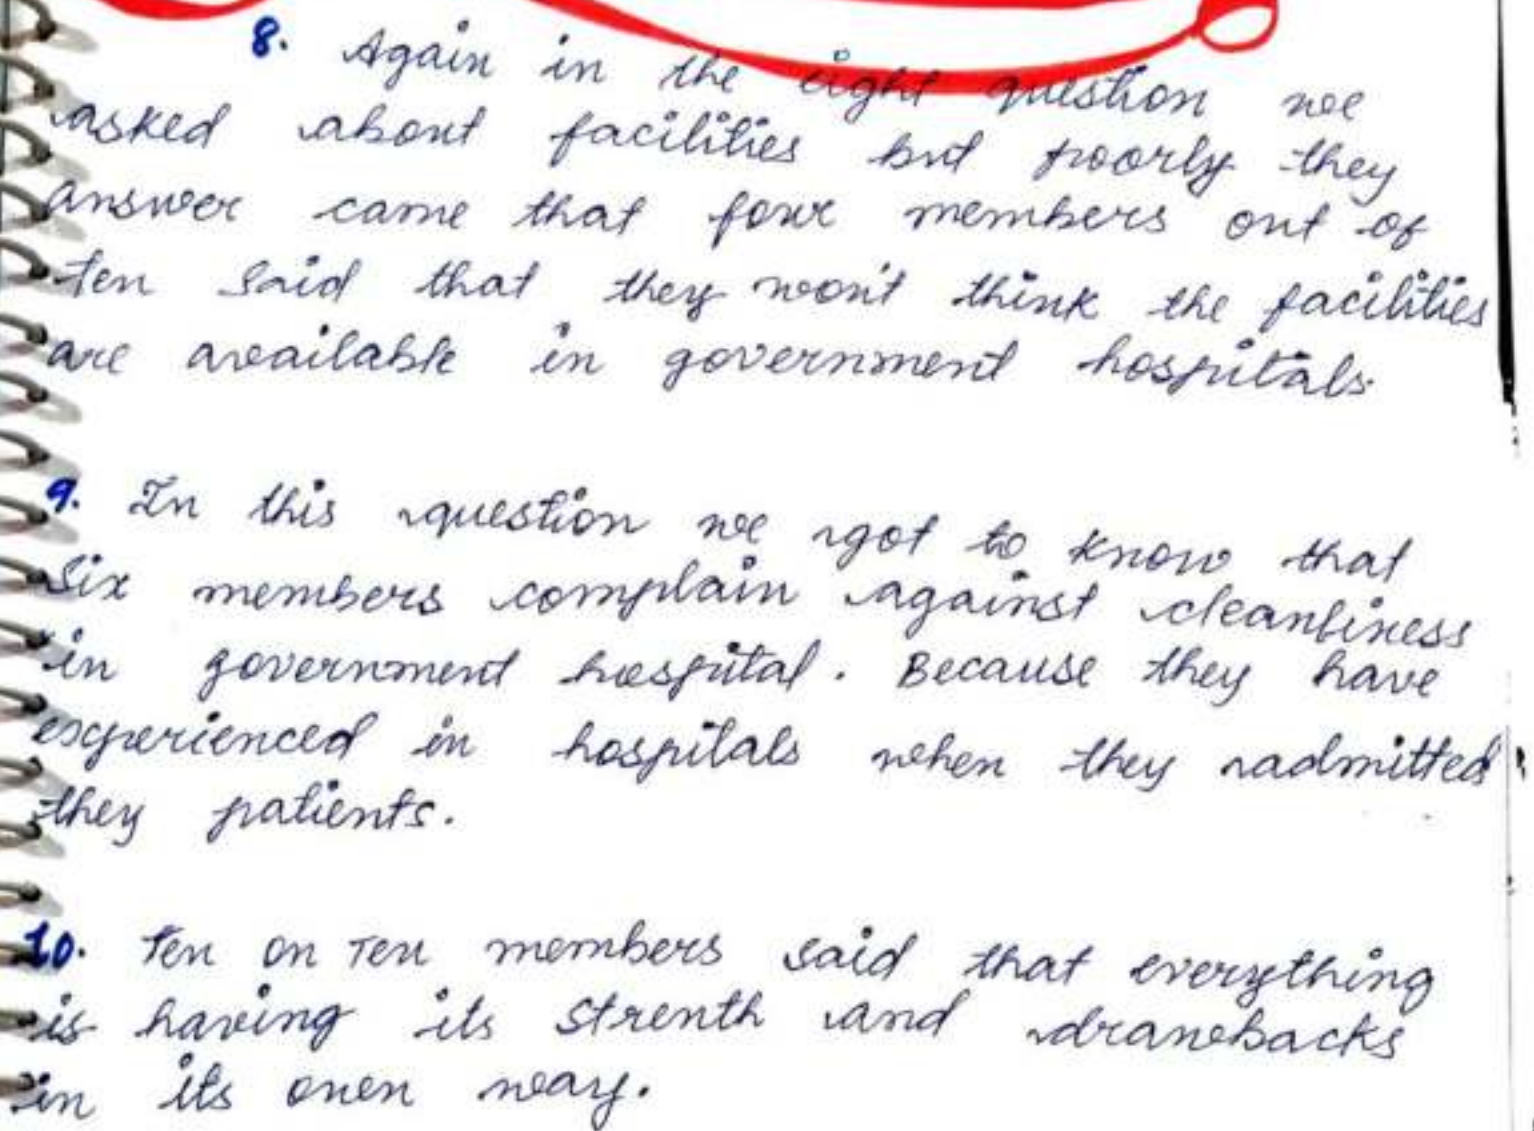 8. Again in the eight question we
asked about facilities but poorly they
answer came that four members out of
ten said that they won't think the facilities
are available in government hospitals.
9. In this question we got to know that
Six members complain against cleanliness
in government hospital. Because they have
experienced in hospitals when they admitted
they patients.
10. Ten on Ten members said that everything
is having its strenth and drawbacks
in its own way.